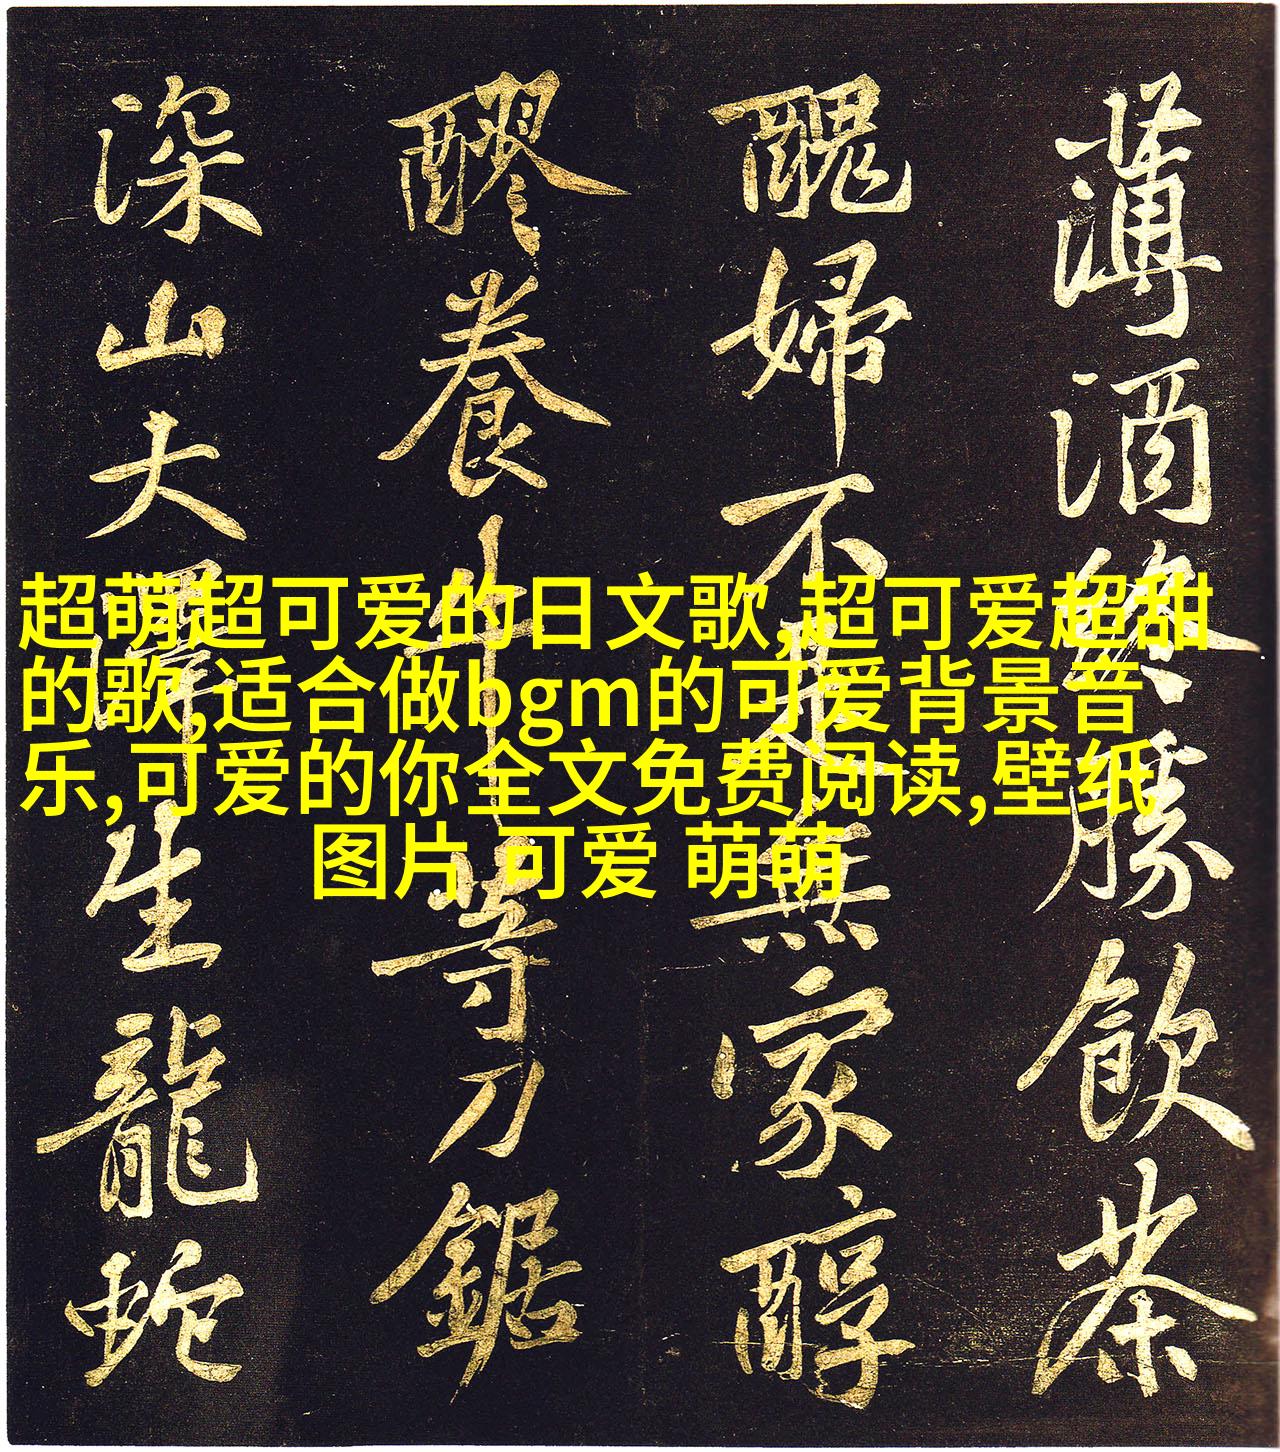 超萌超可爱的日文歌,超可爱超甜
的歌,适合做bgm的可爱背景音
乐,可爱的你全文免费阅读,壁纸
图片 可爱 萌萌
薄酒終勝飲茶
醜婦不是無家醇
醪養牛等刀鋸
深山大澤生龍蛇